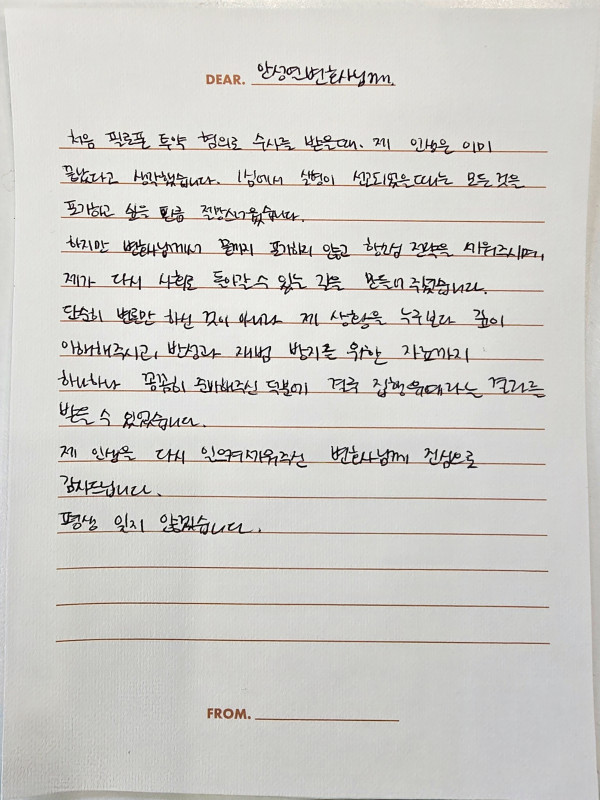 DEAR. 안성연변호사님께.
처음 필로폰 투약 혐의로 수사를 받을때. 제 인생은 이미
끝났다고 생각했습니다. 1심에서 실형이 선고되었을때는 모든것을
포기하고 싶을 만큼 절망스러웠습니다.
하지만 변호사님께서 끝까지 포기하지 않고 항소심 전략을 세워주시며,
제가 다시 사회로 돌아갈 수 있는 길을 만들어 주셨습니다.
단순히 변론만 하신 것이 아니라 제 상황을 누구보다 깊이
이해해주시고, 반성과 재범 방지를 위한 자료까지
하나하나 꼼꼼히 준비해주신 덕분에 결국 집행유예라는 결과를
받을 수 있었습니다.
제 인생을 다시 일으켜세워주신 변호사님께 진심으로
감사드립니다.
평생 잊지 않겠습니다.
FROM.